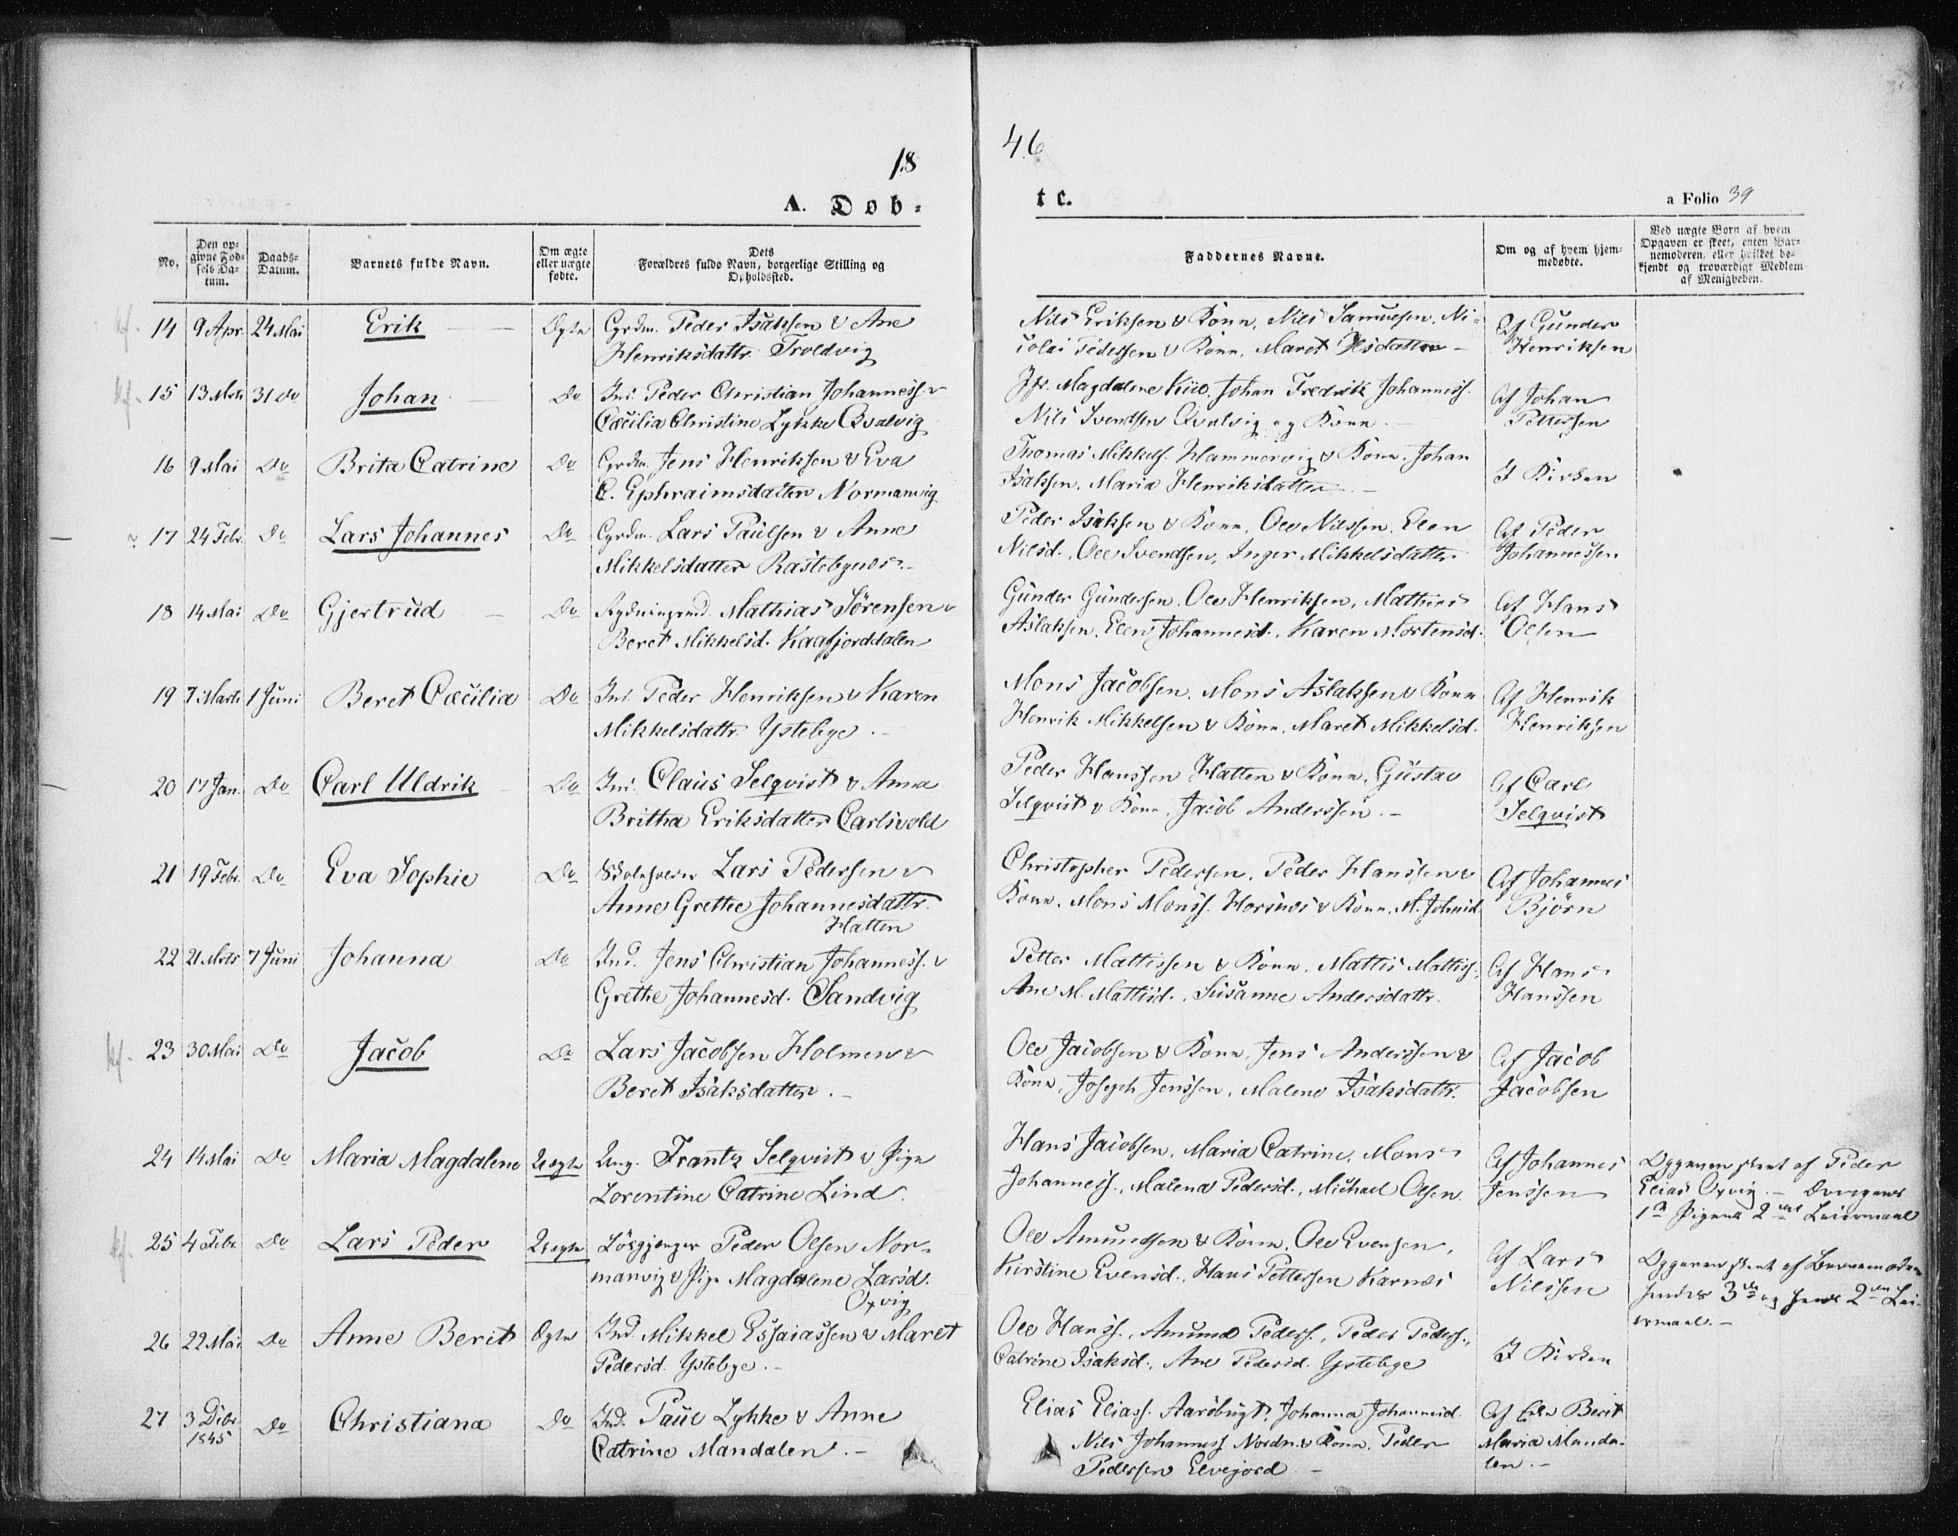 18
46
A. Døb-
te.
a Folio 39
No.
Den op-
givne Fød-
sels Da-
tum.
Daabs-
Datum.
Barnets fulde Navn.
Om ægte
eller uægte
fødte.
Dets
Forældres fulde Navn, borgerlige Stilling og
Opholdssted.
Faddernes Navne.
Om og af hvem hjem-
medøbte.
Ved uægte Børn af hvem
Opgaven er skeet, enten Bar-
nemoderen, eller hvilket be-
kjendt og troværdigt Medlem
af Menigheden.
14 9 Apr. 24 Mai Erik Ægte Grdm. Peder Isaksen & Ane
Henriksdattr. Troldvig
Nils Eriksen & Kone, Nils Samuelsen, Ni-
colai Pedersen & Kone, Maret Ilsdatter
Af Gunder
Henriksen
15 13 Mrts 31 Do Johan Do Ind. Peder Christian Johanness. &
Cæcilia Christine Lykke Qvalvig
Jfr. Magdalene Kiil, Johan Fredrik Johanness.
Nils Svendsen Qvalvig og Kone.
Af Johan
Pettersen
16 9 Mai Do Brita Catrine Do Gyrdm. Jens Henriksen & Eva
C. Ephraimsdatter Normanvig
Thomas Mikkels. Hammervig & Kone, Johan
Isaksen, Maria Henriksdatter
I Kirken
17 24 Febr. Do Lars Johannes Do Gyrdm. Lars Paulsen & Anne
Mikkelsdatter Rastebynes
Peder Isaksen & Kone, Ole Nilssen, Elen
Nilsd., Ole Svendsen, Inger Mikkelsdatter
Af Peder
Johannessen
18 14 Mai Do Gjertrud Do Rydningsmd. Mathias Sørensen &
Beret Mikkelsd. Kaafjorddalen
Gunder Gundersen, Ole Henriksen, Mathias
Aslaksen, Elen Johannesd., Karen Mortensd.
Af Hans
Olsen
19 7 Marts 1 Juni Beret Cæcilia Do Ind. Peder Henriksen & Karen
Mikkelsdattr. Ystebye.
Mons Jacobsen, Mons Aslaksen & Kone
Henrik Mikkelsen & Kone, Maret Mikkelsd.
Af Henrik
Henriksen
20 17 Jan. Do Carl Uldrik Do Ind. Claus Selqvist & Anna
Britha Eriksdatter Carlsvold
Peder Hanssen Hatten & Kone, Gustav
Selqvist & Kone, Jacob Anderssen.
Af Carl
Selqvist
21 19 Febr. Do Eva Sophie Do Skoleholder Lars Pedersen &
Anne Grethe Johannesdattr.
Hatten
Christopher Pedersen, Peder Hanssen &
Kone, Mons Monss. Horsnes & Kone, M. Johnsd.
Af Johannes
Bjørn
22 21 Mrts 7 Juni Johanna Do Ind. Jens Christian Johanness. &
Grethe Johannesd. Sandvig
Petter Mattissen & Kone, Mattis Mattiss.,
Ane M. Mattisd., Susanne Andersdattr.
Af Hans
Hanssen
23 30 Mai Do Jacob Do Lars Jacobsen Holmen &
Beret Isaksdatter.
Ole Jacobsen & Kone, Jens Anderssen &
Kone, Joseph Jenssen, Malene Isaksdattr.
Af Jacob
Jacobsen
24 14 Mai Do Maria Magdalene Uægte Ung. Frantz Selqvist & Pige
Lorentine Catrine Lind.
Hans Jacobsen, Maria Catrine, Mons
Johanness., Malena Pedersd., Michael Olsen.
Af Johannes
Jenssen
Opgaven skeet af Peder
Elias Oxvig.
1ste Pigens 2det Leiermaal
25 4 Febr. Do Lars Peder Uægte Løsgjenger Peder Olsen Nor-
manvig & Pige Magdalene Larsd.
Oxvig
Ole Amundsen & Kone, Ole Evensen,
Kirstine Evensd., Hans Pettersen Karnæs
Af Lars
Nilssen
Opgaven skeet af Barnemoderen
hendes 3de og hans 2den Lei-
ermaal.
26 22 Mai Do Anne Berit Ægte Ind. Mikkel Essaiassen & Maret
Pedersd. Ystebye.
Ole Hanss., Amund Peders., Peder Peders.,
Catrine Isaksd., Ane Pedersd. Ystebye
I Kirken
27 3 Decbr.
1845 Do Christiana Do Ind. Paul Lykke & Anne
Catrine Mandalen.
Elias Eliass. Aarøbugt, Johanna Johannesd.
Nils Johanness. Nordn. & Kone, Peder
Pedersen Elvejord
Af Berit
Maria Manda-
len.